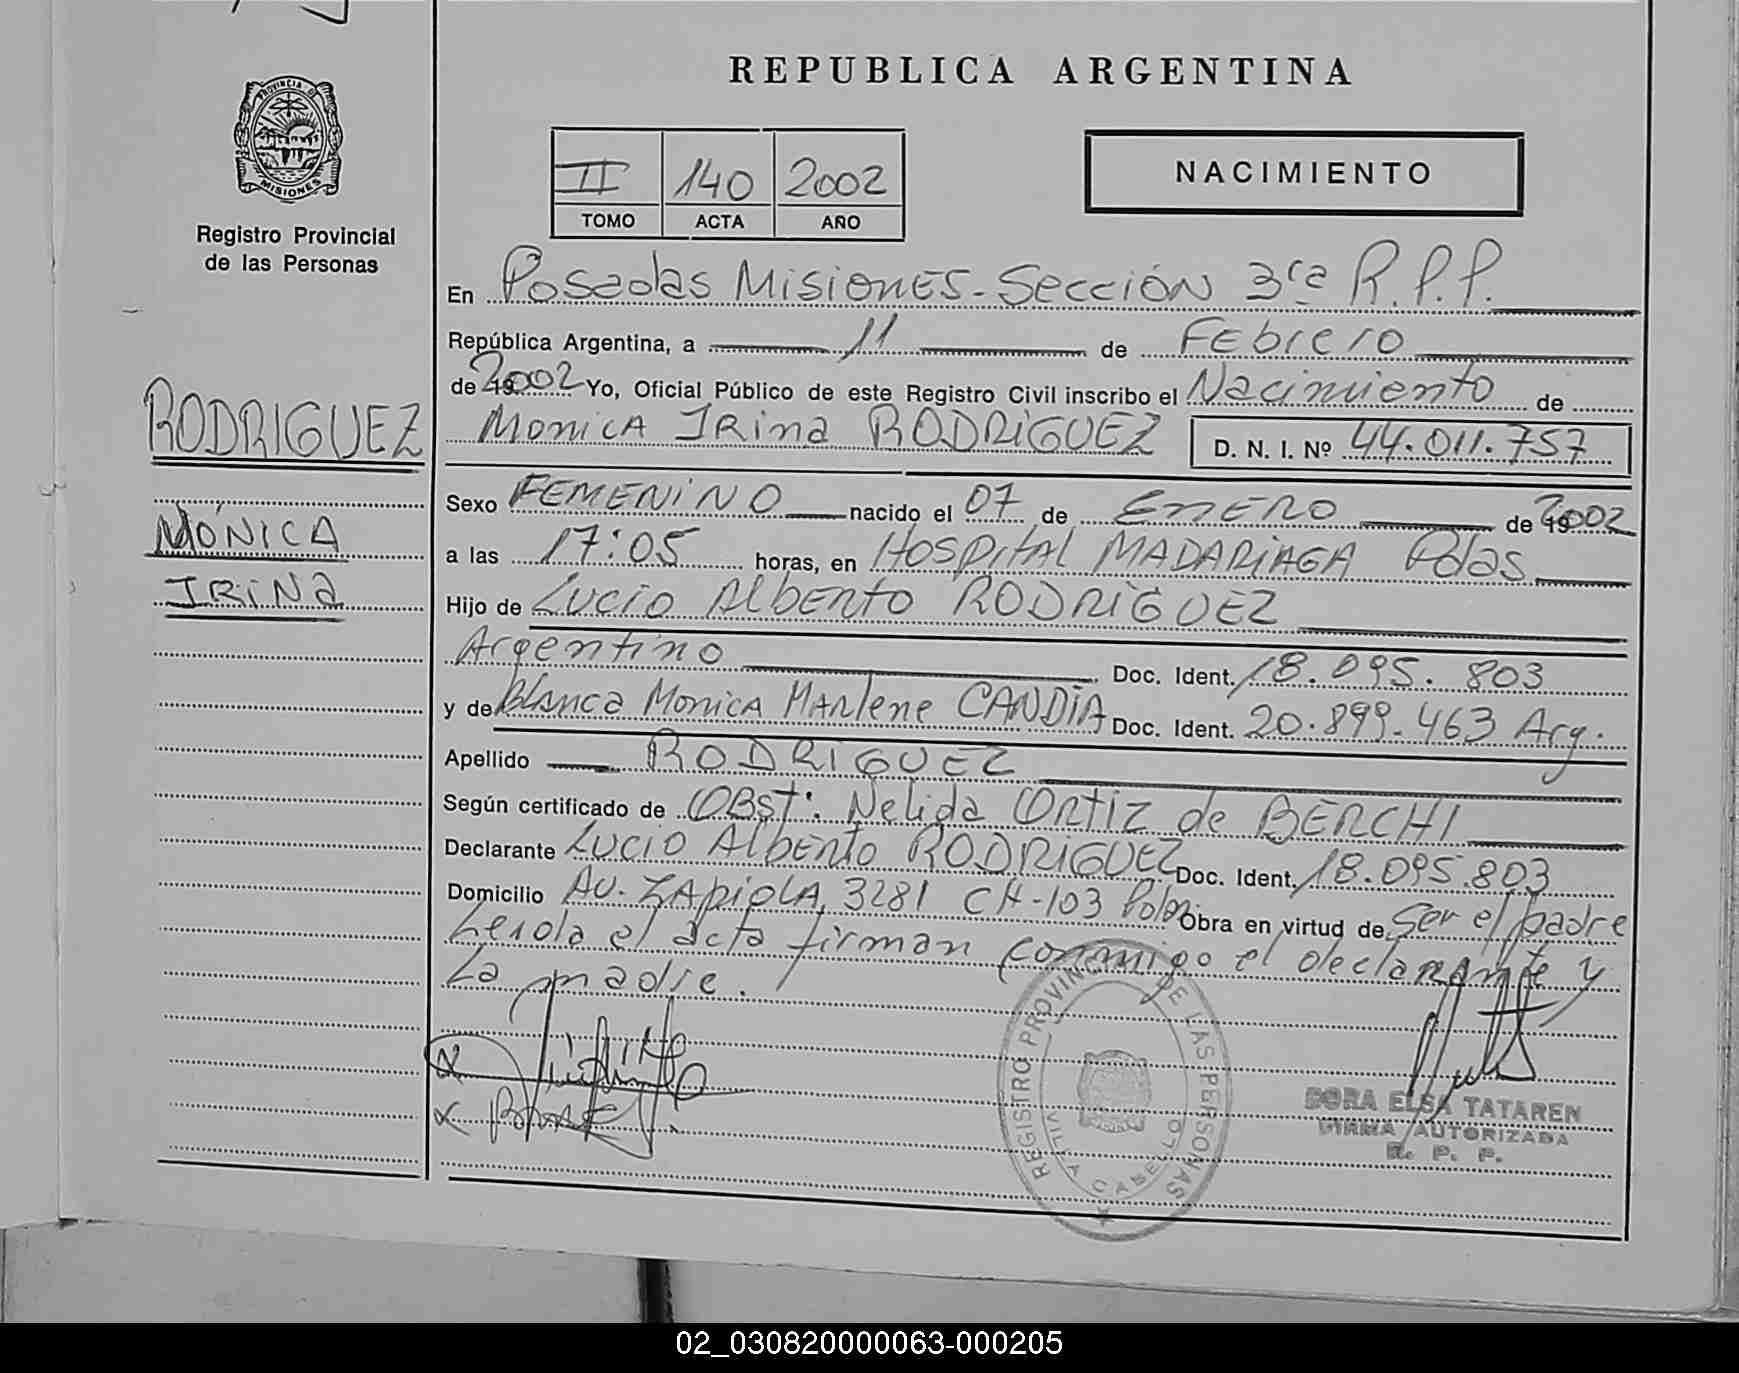 REPUBLICA ARGENTINA
PROVINCIA DE
MISIONES
Registro Provincial
de las Personas
II 140 2002
TOMO ACTA AÑO
NACIMIENTO
En Posadas Misiones - Sección 3ra R.P.P.
República Argentina, a 11 de Febrero
de 2002 Yo, Oficial Público de este Registro Civil inscribo el Nacimiento de
Monica Irina RODRIGUEZ D. N. I. Nº 44.011.757
RODRIGUEZ
MÓNICA
IRINA
Sexo FEMENINO nacido el 07 de ENERO de 2002
a las 17:05 horas, en HOSPITAL MADARIAGA Pdas
Hijo de Lucio Alberto RODRIGUEZ
Argentino Doc. Ident. 18.095.803
y de Blanca Monica Marlene CANDIA Doc. Ident. 20.899.463 Arg.
Apellido RODRIGUEZ
Según certificado de OBST: Nelida ORTIZ de BERCHI
Declarante Lucio Alberto RODRIGUEZ Doc. Ident. 18.095.803
Domicilio AV. ZAPIOLA, 3281 CH-103 Obra en virtud de Ser el padre
Leida el acta firman conmigo el declarante y
La madre.
REGISTRO PROVINCIAL DE LAS PERSONAS
VILLA CABELLO
DORA ELSA TATAREN
FIRMA AUTORIZADA
R. P. P.
02_030820000063-000205